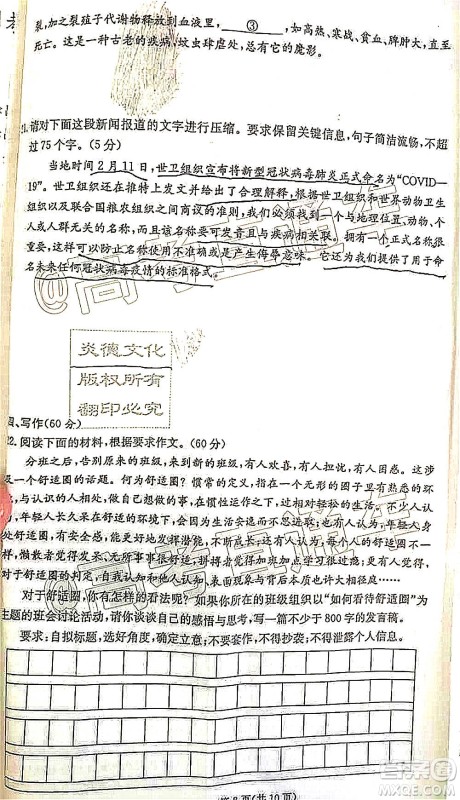 裂,加之裂殖子代谢物释放到血液里,③,如高热、寒战、贫血、脾肿大,直至
死亡。这是一种古老的疾病,蚊虫肆虐处,总有它的魔影。
21.请对下面这段新闻报道的文字进行压缩。要求保留关键信息,句子简洁流畅,不超
过75个字。(5分)
当地时间2月11日,世卫组织宣布将新型冠状病毒肺炎正式命名为“COVID—
19”。世卫组织还在推特上发文并给出了合理解释,根据世卫组织和世界动物卫生
组织以及联合国粮农组织之间商议的准则,我们必须找到一个与地理位置、动物、个
人或人群无关的名称,而且该名称要可发音且与疾病相关联。拥有一个正式名称很
重要,这样可以防止名称使用不准确或是产生侮辱意味。它还为我们提供了用于命
名未来任何冠状病毒疫情的标准格式。
炎德文化
版权所有
翻印必究
四、写作(60分)
22.阅读下面的材料,根据要求作文。(60分)
分班之后,告别原来的班级,来到新的班级,有人欢喜,有人担忧,有人困惑。这涉
及一个舒适圈的话题。何为舒适圈?惯常的定义,指在一个无形的圈子里有熟悉的环
境,与认识的人相处,做自己想做的事,在惯性运作之下,过相对轻松的生活。不少人认
为,年轻人长久呆在舒适的环境下,会因为生活安逸而不思进取;也有人认为,年轻人身
处舒适圈,有安全感,能更好地发挥潜能,不断成长;还有人认为,每个人的舒适圈不一
样,懒散者觉得发呆、无所事事很舒适,拼搏者觉得加班加点学习很舒适;有人更觉得,
对于舒适圈的判定,自我认知和他人认知有差别,表面现象与背后本质也许大相径庭……
对于舒适圈,你有怎样的看法呢?如果你所在的班级组织以“如何看待舒适圈”为
主题的班会讨论活动,请你谈谈自己的感悟与思考,写一篇不少于800字的发言稿。
要求:自拟标题,选好角度,确定立意;不要套作,不得抄袭;不得泄露个人信息。
第8页(共10页)